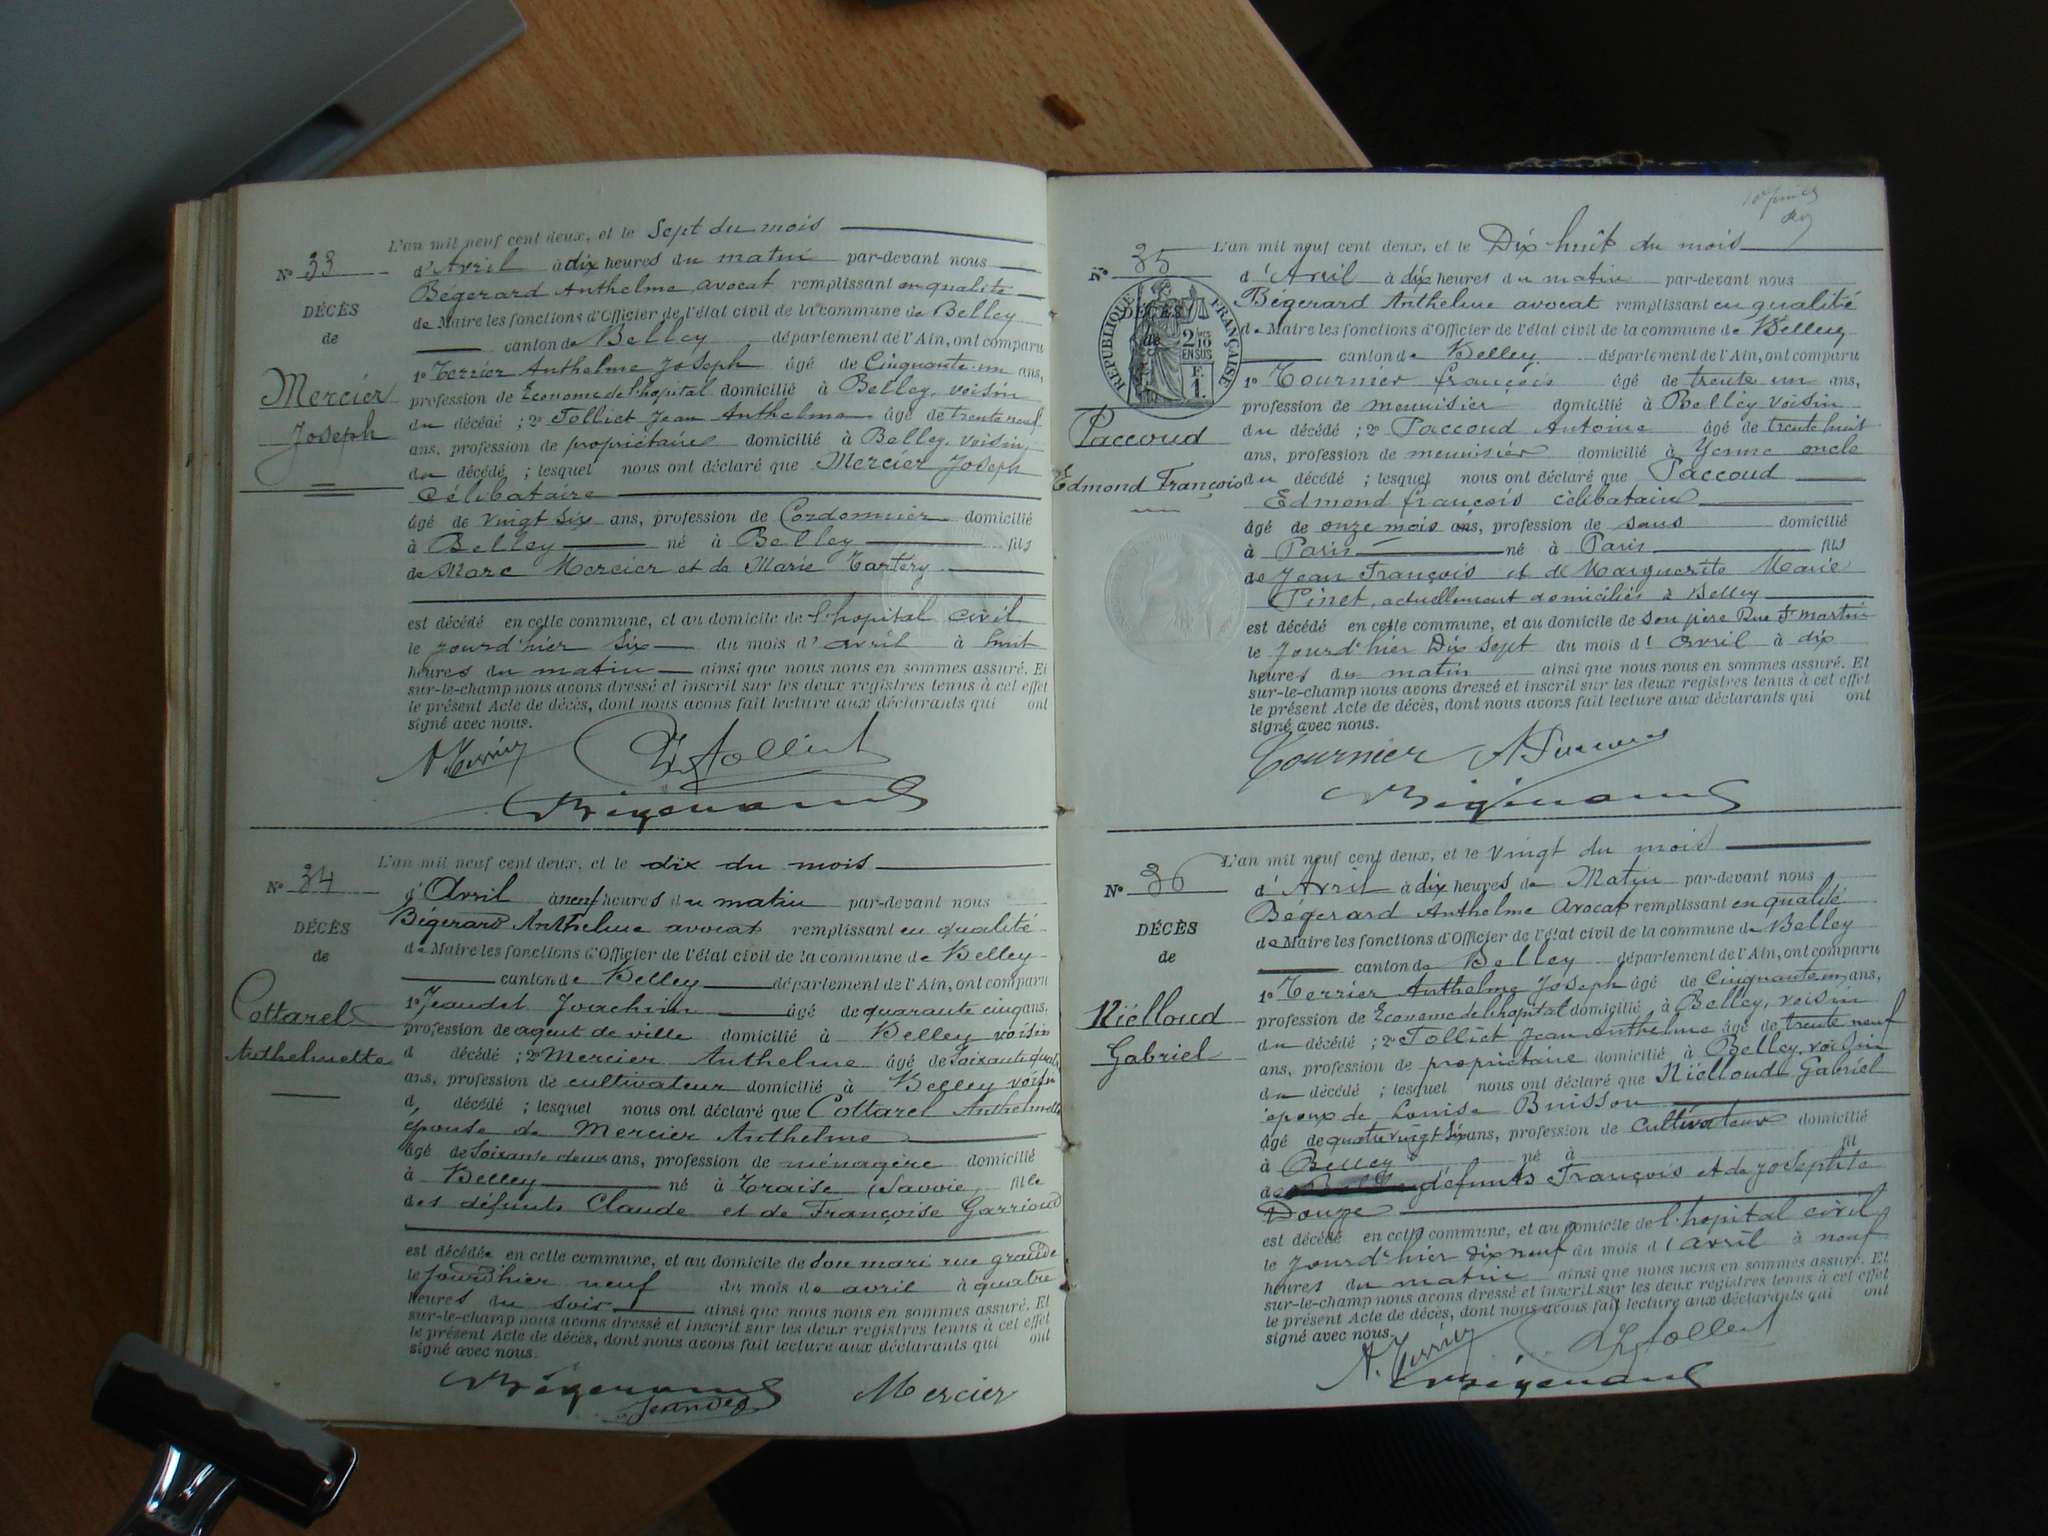 L'an mil neuf cent deux, et le Sept du mois
No 33 d'Avril à dix heures du matin par-devant nous
DÉCÈS Bégerard Anthelme avocat remplissant en qualité
de Maire les fonctions d'Officier de l'état civil de la commune de Belley
de canton de Belley département de l'Ain, ont comparu
1o Terrier Anthelme Joseph âgé de Cinquante un ans,
Mercier profession de Econome de l'hopital domicilié à Belley, voisin
Joseph du décédé ; 2o Tolliet Jean Anthelme âgé de trente neuf
ans, profession de propriétaire domicilié à Belley, voisin
du décédé ; lesquel nous ont déclaré que Mercier Joseph
Célibataire
âgé de vingt six ans, profession de Cordonnier domicilié
à Belley né à Belley fils
de Marc Mercier et de Marie Tartery
est décédé en cette commune, et au domicile de l'hopital civil
le jourd'hier six du mois d'avril à huit
heures du matin ainsi que nous nous en sommes assuré. Et
sur-le-champ nous avons dressé et inscrit sur les deux registres tenus à cet effet
le présent Acte de décès, dont nous avons fait lecture aux déclarants qui ont
signé avec nous.
A. Terrier Tolliet
Bégerard
L'an mil neuf cent deux, et le dix du mois
No 34 d'Avril à neuf heures du matin par-devant nous
DÉCÈS Bégerard Anthelme avocat remplissant en qualité
de de Maire les fonctions d'Officier de l'état civil de la commune de Belley
canton de Belley département de l'Ain, ont comparu
Cottarel 1o Jeaudet Joachim âgé de quarante cinq ans,
profession de agent de ville domicilié à Belley voisin
Anthelmette d décédé ; 2o Mercier Anthelme âgé de Soixante quatre
ans, profession de cultivateur domicilié à Belley voisin
d décédé ; lesquel nous ont déclaré que Cottarel Anthelmette
épouse de Mercier Anthelme
âgé de Soixante deux ans, profession de ménagère domicilié
à Belley né à Traise (Savoie) fille
des défunts Claude et de Françoise Garrioud
est décédée en cette commune, et au domicile de Son mari rue grande
le jourd'hier neuf du mois de avril à quatre
heures du soir ainsi que nous nous en sommes assuré. Et
sur-le-champ nous avons dressé et inscrit sur les deux registres tenus à cet effet
le présent Acte de décès, dont nous avons fait lecture aux déclarants qui ont
signé avec nous.
Bégerard Mercier
Jeaudet
L'an mil neuf cent deux, et le Dix huit du mois
No 35 d'Avril à dix heures du matin par-devant nous
RÉPUBLIQUE FRANÇAISE
2/10 EN SUS
F. 1.
DÉCÈS Bégerard Anthelme avocat remplissant en qualité
de de Maire les fonctions d'Officier de l'état civil de la commune de Belley
canton de Belley département de l'Ain, ont comparu
1o Tournier françois âgé de trente un ans,
profession de menuisier domicilié à Belley voisin
Paccoud du décédé ; 2o Paccoud Antoine âgé de trente huit
ans, profession de menuisier domicilié à Yenne oncle
Edmond François du décédé ; lesquel nous ont déclaré que Paccoud
Edmond françois célibataire
âgé de onze mois ans, profession de sans domicilié
à Paris né à Paris fils
de Jean François et de Marguerite Marie
Pinet, actuellement domiciliés à Belley
est décédé en cette commune, et au domicile de son père Rue St martin
le Jourd'hier Dix Sept du mois d'avril à dix
heures du matin ainsi que nous nous en sommes assuré. Et
sur-le-champ nous avons dressé et inscrit sur les deux registres tenus à cet effet
le présent Acte de décès, dont nous avons fait lecture aux déclarants qui ont
signé avec nous.
Tournier A Paccoud
Bégerard
L'an mil neuf cent deux, et le vingt du mois
No 36 d'Avril à dix heures de Matin par-devant nous
Bégerard Anthelme Avocat remplissant en qualité
DÉCÈS de Maire les fonctions d'Officier de l'état civil de la commune de Belley
de canton de Belley département de l'Ain, ont comparu
1o Terrier Anthelme Joseph âgé de Cinquante un ans,
Niélloud profession de Econome de l'hopital domicilié à Belley, voisin
Gabriel du décédé ; 2o Tolliet Jean Anthelme âgé de trente neuf
ans, profession de propriétaire domicilié à Belley, voisin
du décédé ; lesquel nous ont déclaré que Niélloud Gabriel
époux de Louise Buisson
âgé de quatre vingt six ans, profession de cultivateur domicilié
à Belley né à fil
de défunts François et de Josephte
Douze
est décédé en cette commune, et au domicile de l'hopital civil
le Jourd'hier dix neuf du mois d'avril à neuf
heures du matin ainsi que nous nous en sommes assuré. Et
sur-le-champ nous avons dressé et inscrit sur les deux registres tenus à cet effet
le présent Acte de décès, dont nous avons fait lecture aux déclarants qui ont
signé avec nous.
A. Terrier Tolliet
Bégerard